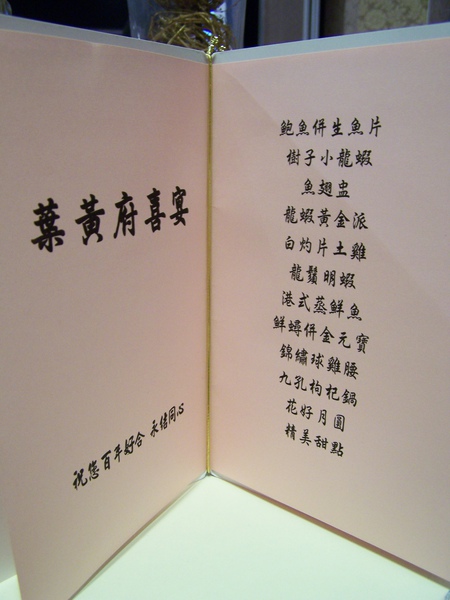 葉黃府喜宴
祝您百年好合 永結同心
鮑魚併生魚片
樹子小龍蝦
魚翅盅
龍蝦黃金派
白灼片土雞
龍鬚明蝦
港式蒸鮮魚
鮮蟳併金元寶
錦繡球雞腰
九孔枸杞鍋
花好月圓
精美甜點